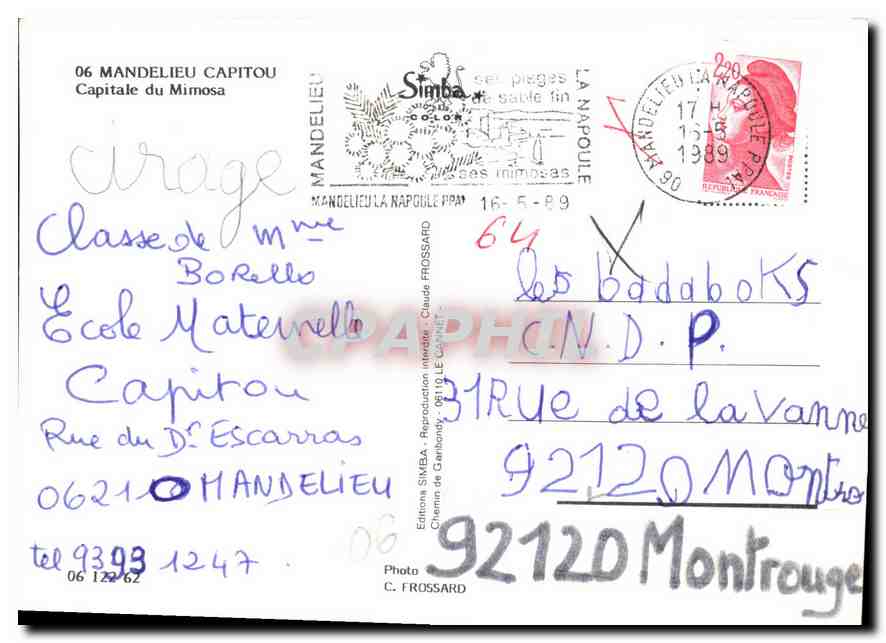 06 MANDELIEU CAPITOU
Capitale du Mimosa
MANDELIEU
Simba
COLOR
ses plages
de sable fin
ses mimosas
LA NAPOULE
MANDELIEU LA NAPOULE PPAL 16-5-89
06 MANDELIEU LA NAPOULE PPAL
17 H
16-5
1989
2,20
REPUBLIQUE FRANCAISE
64
Classe de mme
Borello
Ecole Maternelle
Capitou
Rue du Dr Escarras
06210 MANDELIEU
tel 9393 1247.
06 122 62
06
Editions SIMBA - Reproduction interdite - Claude FROSSARD
Chemin de Garibondy - 06110 LE CANNET -
les badaboKs
C.N.D.P.
31 RUe de la Vanne
92120 Montro
92120 Montrouge
Photo
C. FROSSARD
CPAPHIL